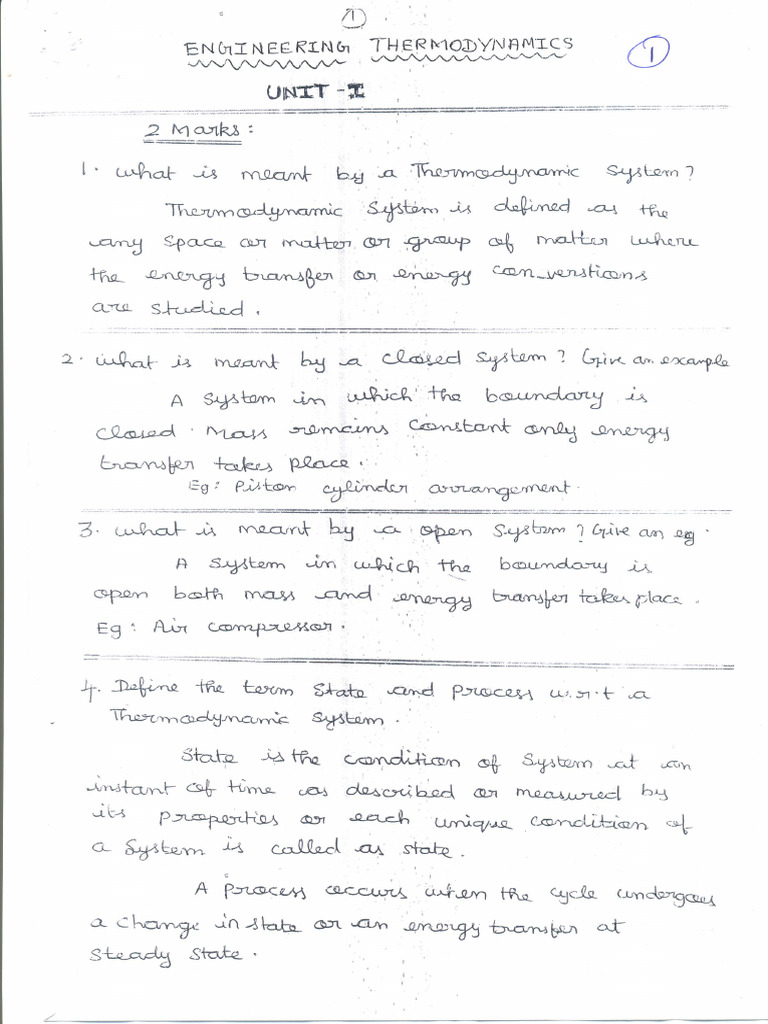 1
ENGINEERING THERMODYNAMICS
1
UNIT - I
2 Marks:
1. What is meant by a Thermodynamic System?
Thermodynamic System is defined as the
any space or matter or group of matter where
the energy transfer or energy con_verstions
are studied.
2. What is meant by a closed system? Give an example
A system in which the boundary is
closed. Mass remains constant only energy
transfer takes place.
Eg: Piston cylinder arrangement.
3. What is meant by a open system? Give an eg.
A system in which the boundary is
open both mass and energy transfer takes place.
Eg: Air compressor.
4. Define the term State and process w.r.t a
Thermodynamic System.
State is the condition of System at an
instant of time as described or measured by
its properties or each unique condition of
a System is called as state.
A process occurs when the cycle undergoes
a change in state or an energy transfer at
steady state.